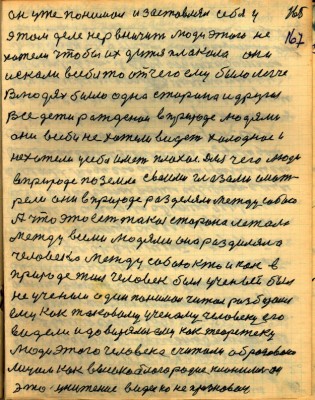 он уже понимал и заставлял себя у 165
этом деле нервничить люди этого не 167
хотели чтобы их дитя плакала они
искали в себя то от чего ему было легче
В людях было одна старана и другая
Все дети раждении в природе людями
они в себе не хотели видеть холодное и
не хотели у себя иметь плохое для чего люди
в природе по земле своими глазами смот
рели они в природе разделяли между собою
А что это есть такая старана лежала
между всеми людями она разделяла
человека между собою кто и как в
природе жил человек был ученый был
не ученый один понимал читал разбирался
ему как таковому ученому человеку его
видели и довиряли ему как теоретику
люди этого человека считали образован
лицом как высоко благородие
это унижение